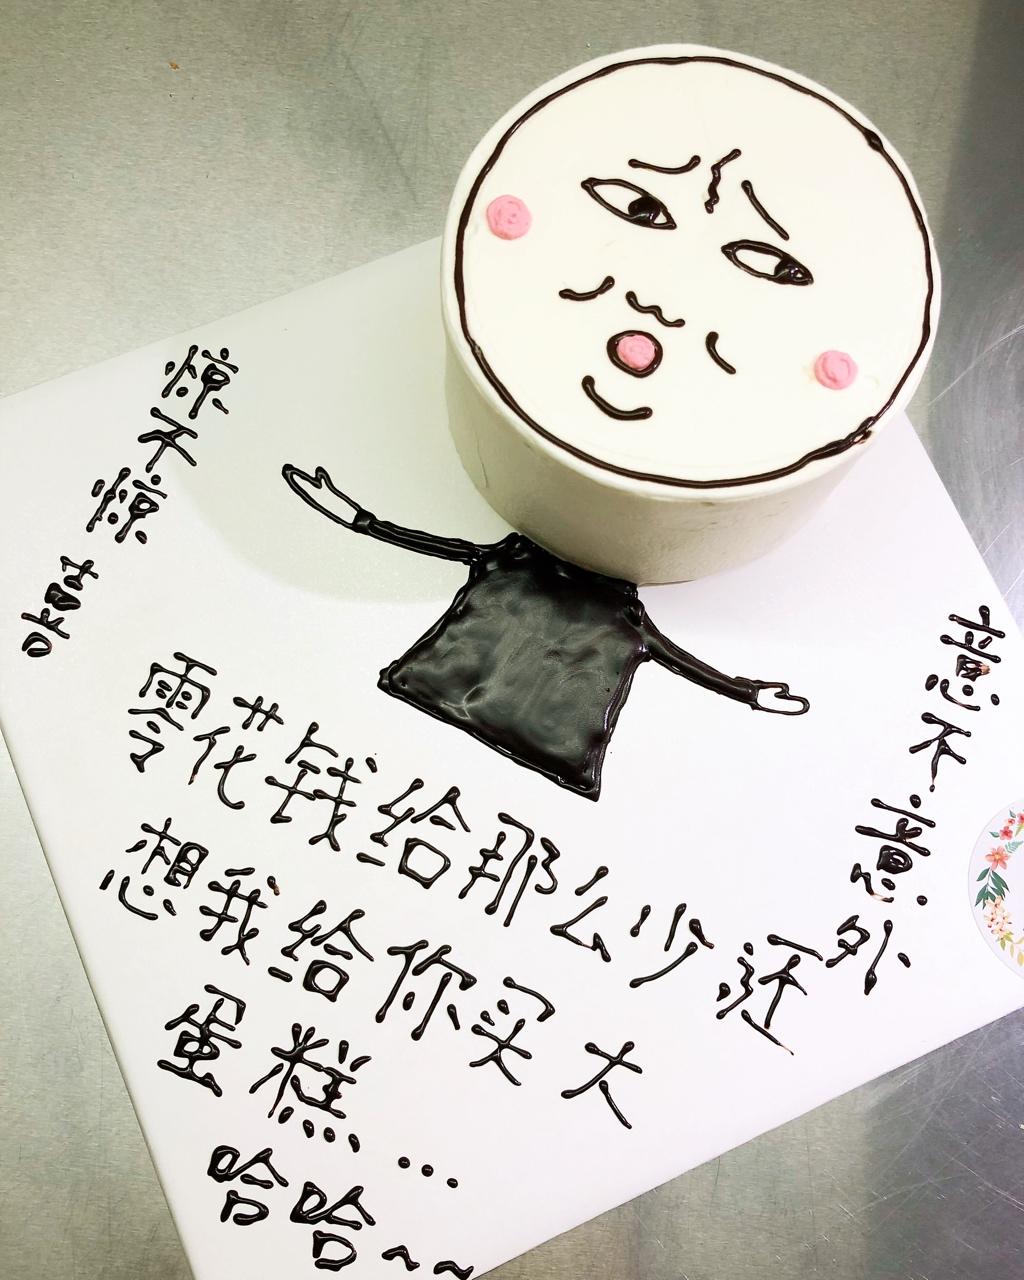 惊不惊喜
意不意外
零花钱给那么少还
想我给你买大
蛋糕...
哈哈~~